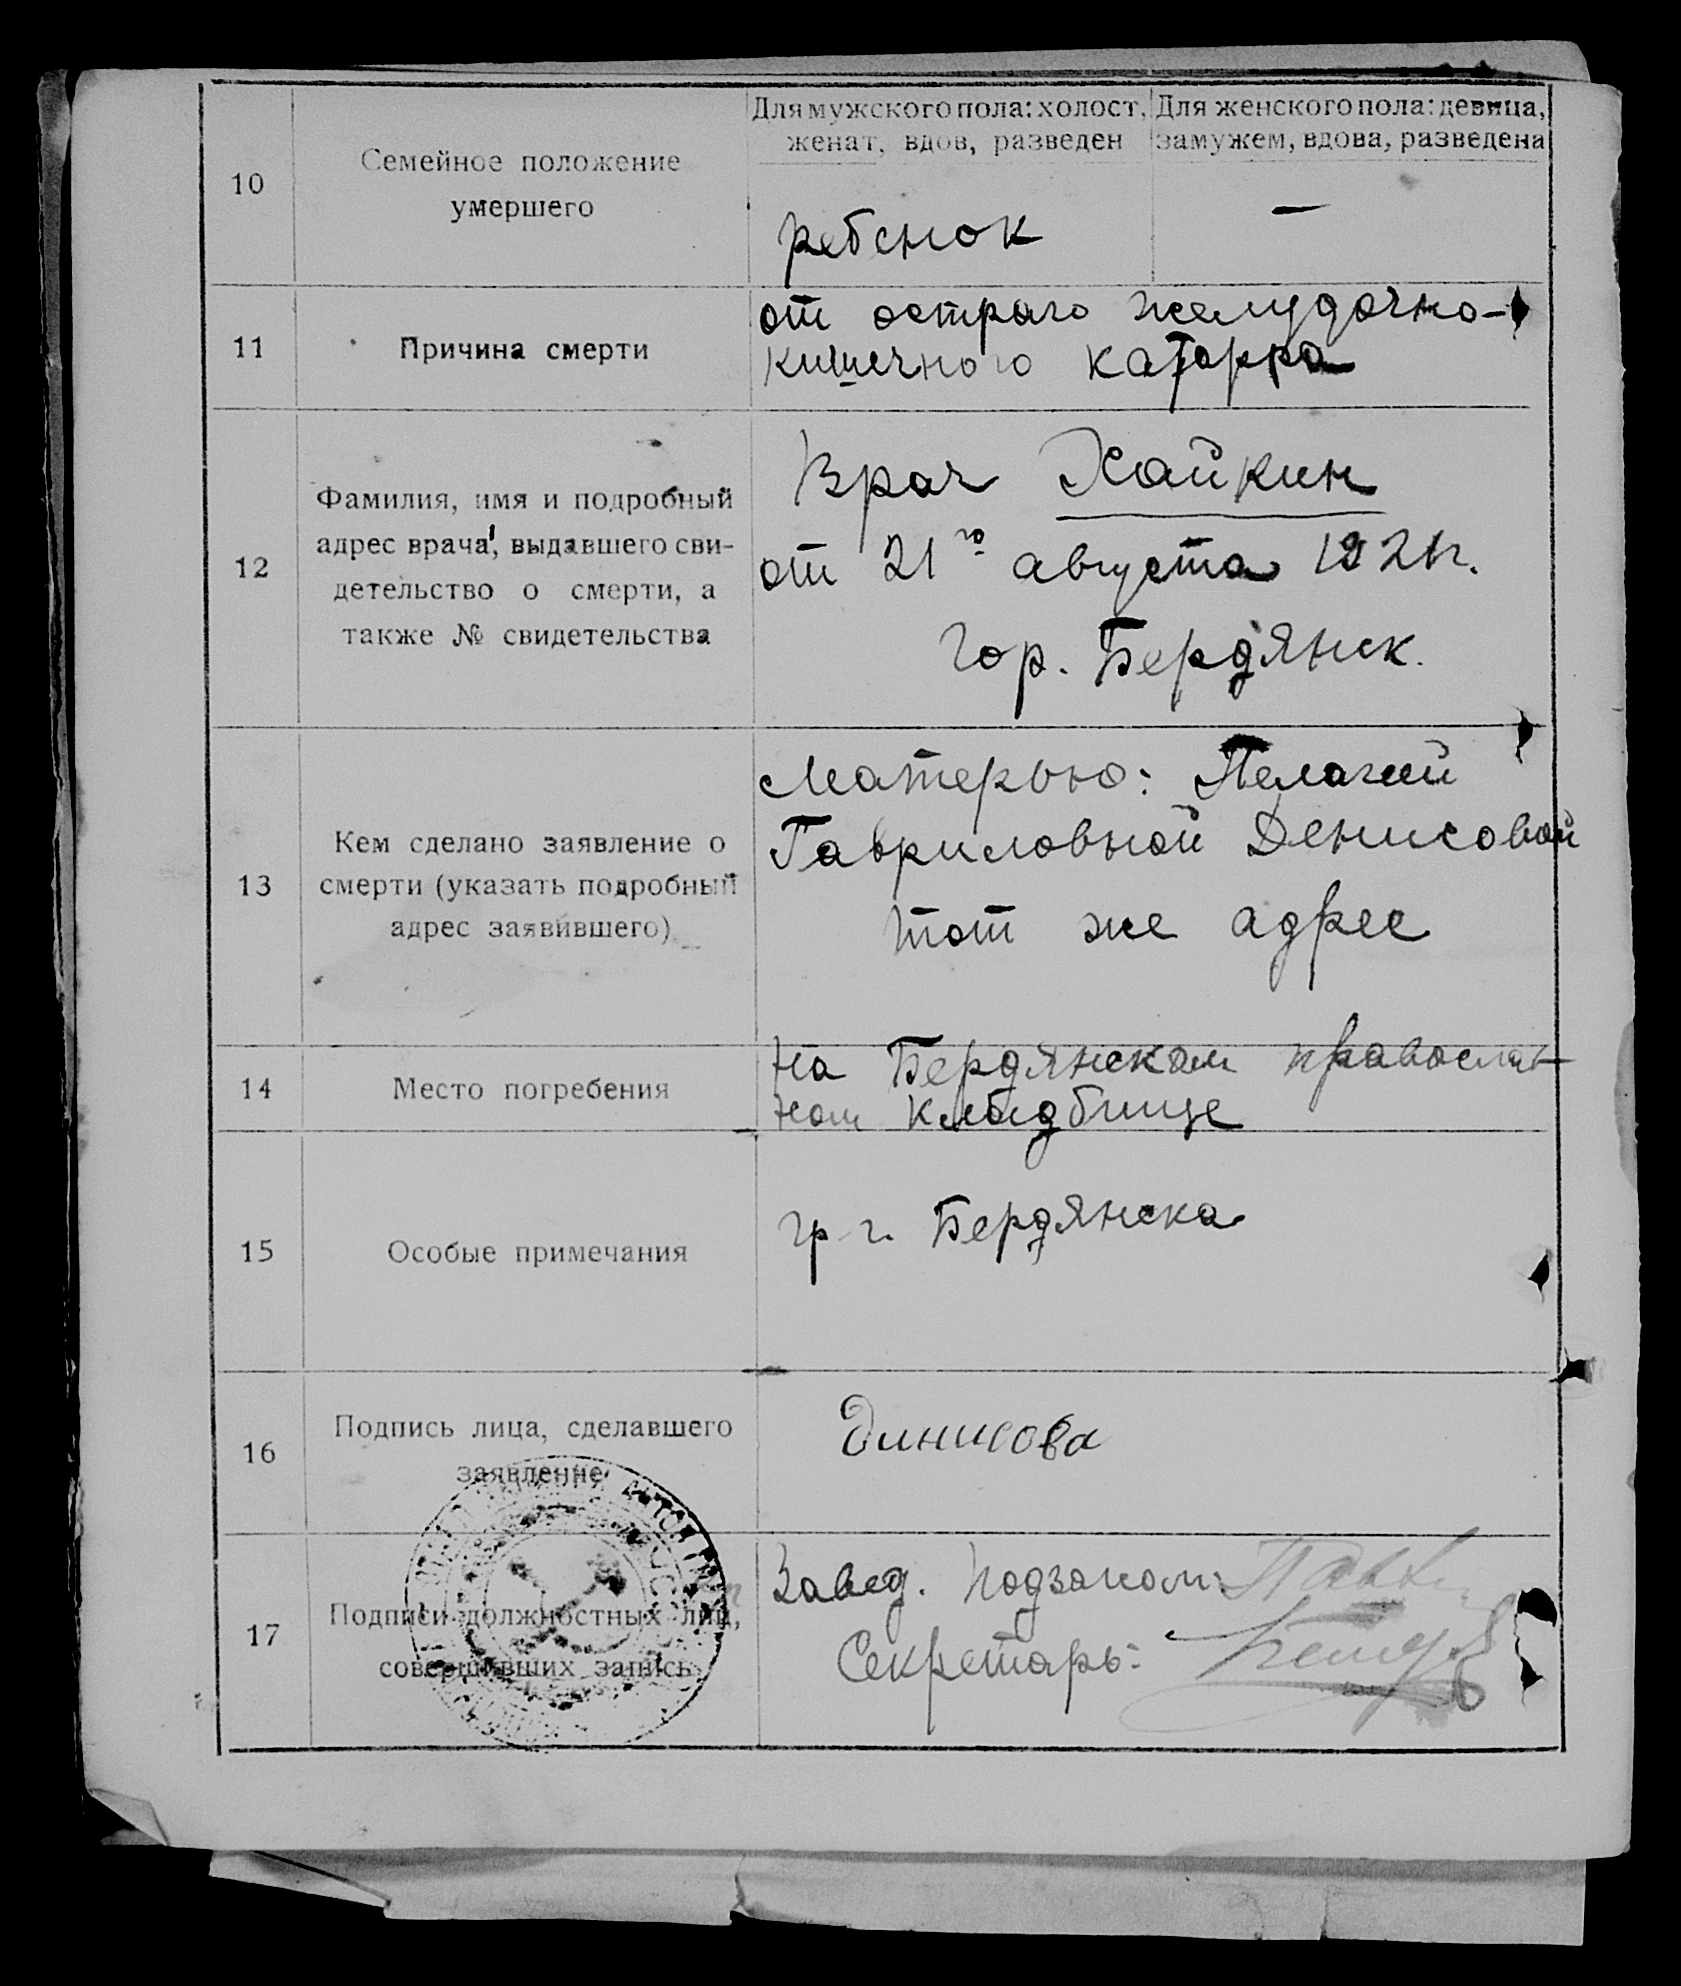 Для мужского пола: холост,
женат, вдов, разведен
Для женского пола: девица,
замужем, вдова, разведена
10
Семейное положение
умершего
ребенок
—
11
Причина смерти
от остраго желудочно-
кишечного катарра
12
Фамилия, имя и подробный
адрес врача, выдавшего сви-
детельство о смерти, а
также № свидетельства
Врач Хайкин
от 21го августа 1921г.
гор. Бердянск.
13
Кем сделано заявление о
смерти (указать подробный
адрес заявившего)
Матерью: Пелагией
Гавриловной Денисовой
тот же адрес
14
Место погребения
на Бердянском православ-
ном кладбище
15
Особые примечания
гр. г. Бердянска
16
Подпись лица, сделавшего
заявление
Динисова
17
Подписи должностных лиц,
совершивших запись
Завед. Подзагом:
Секретарь: